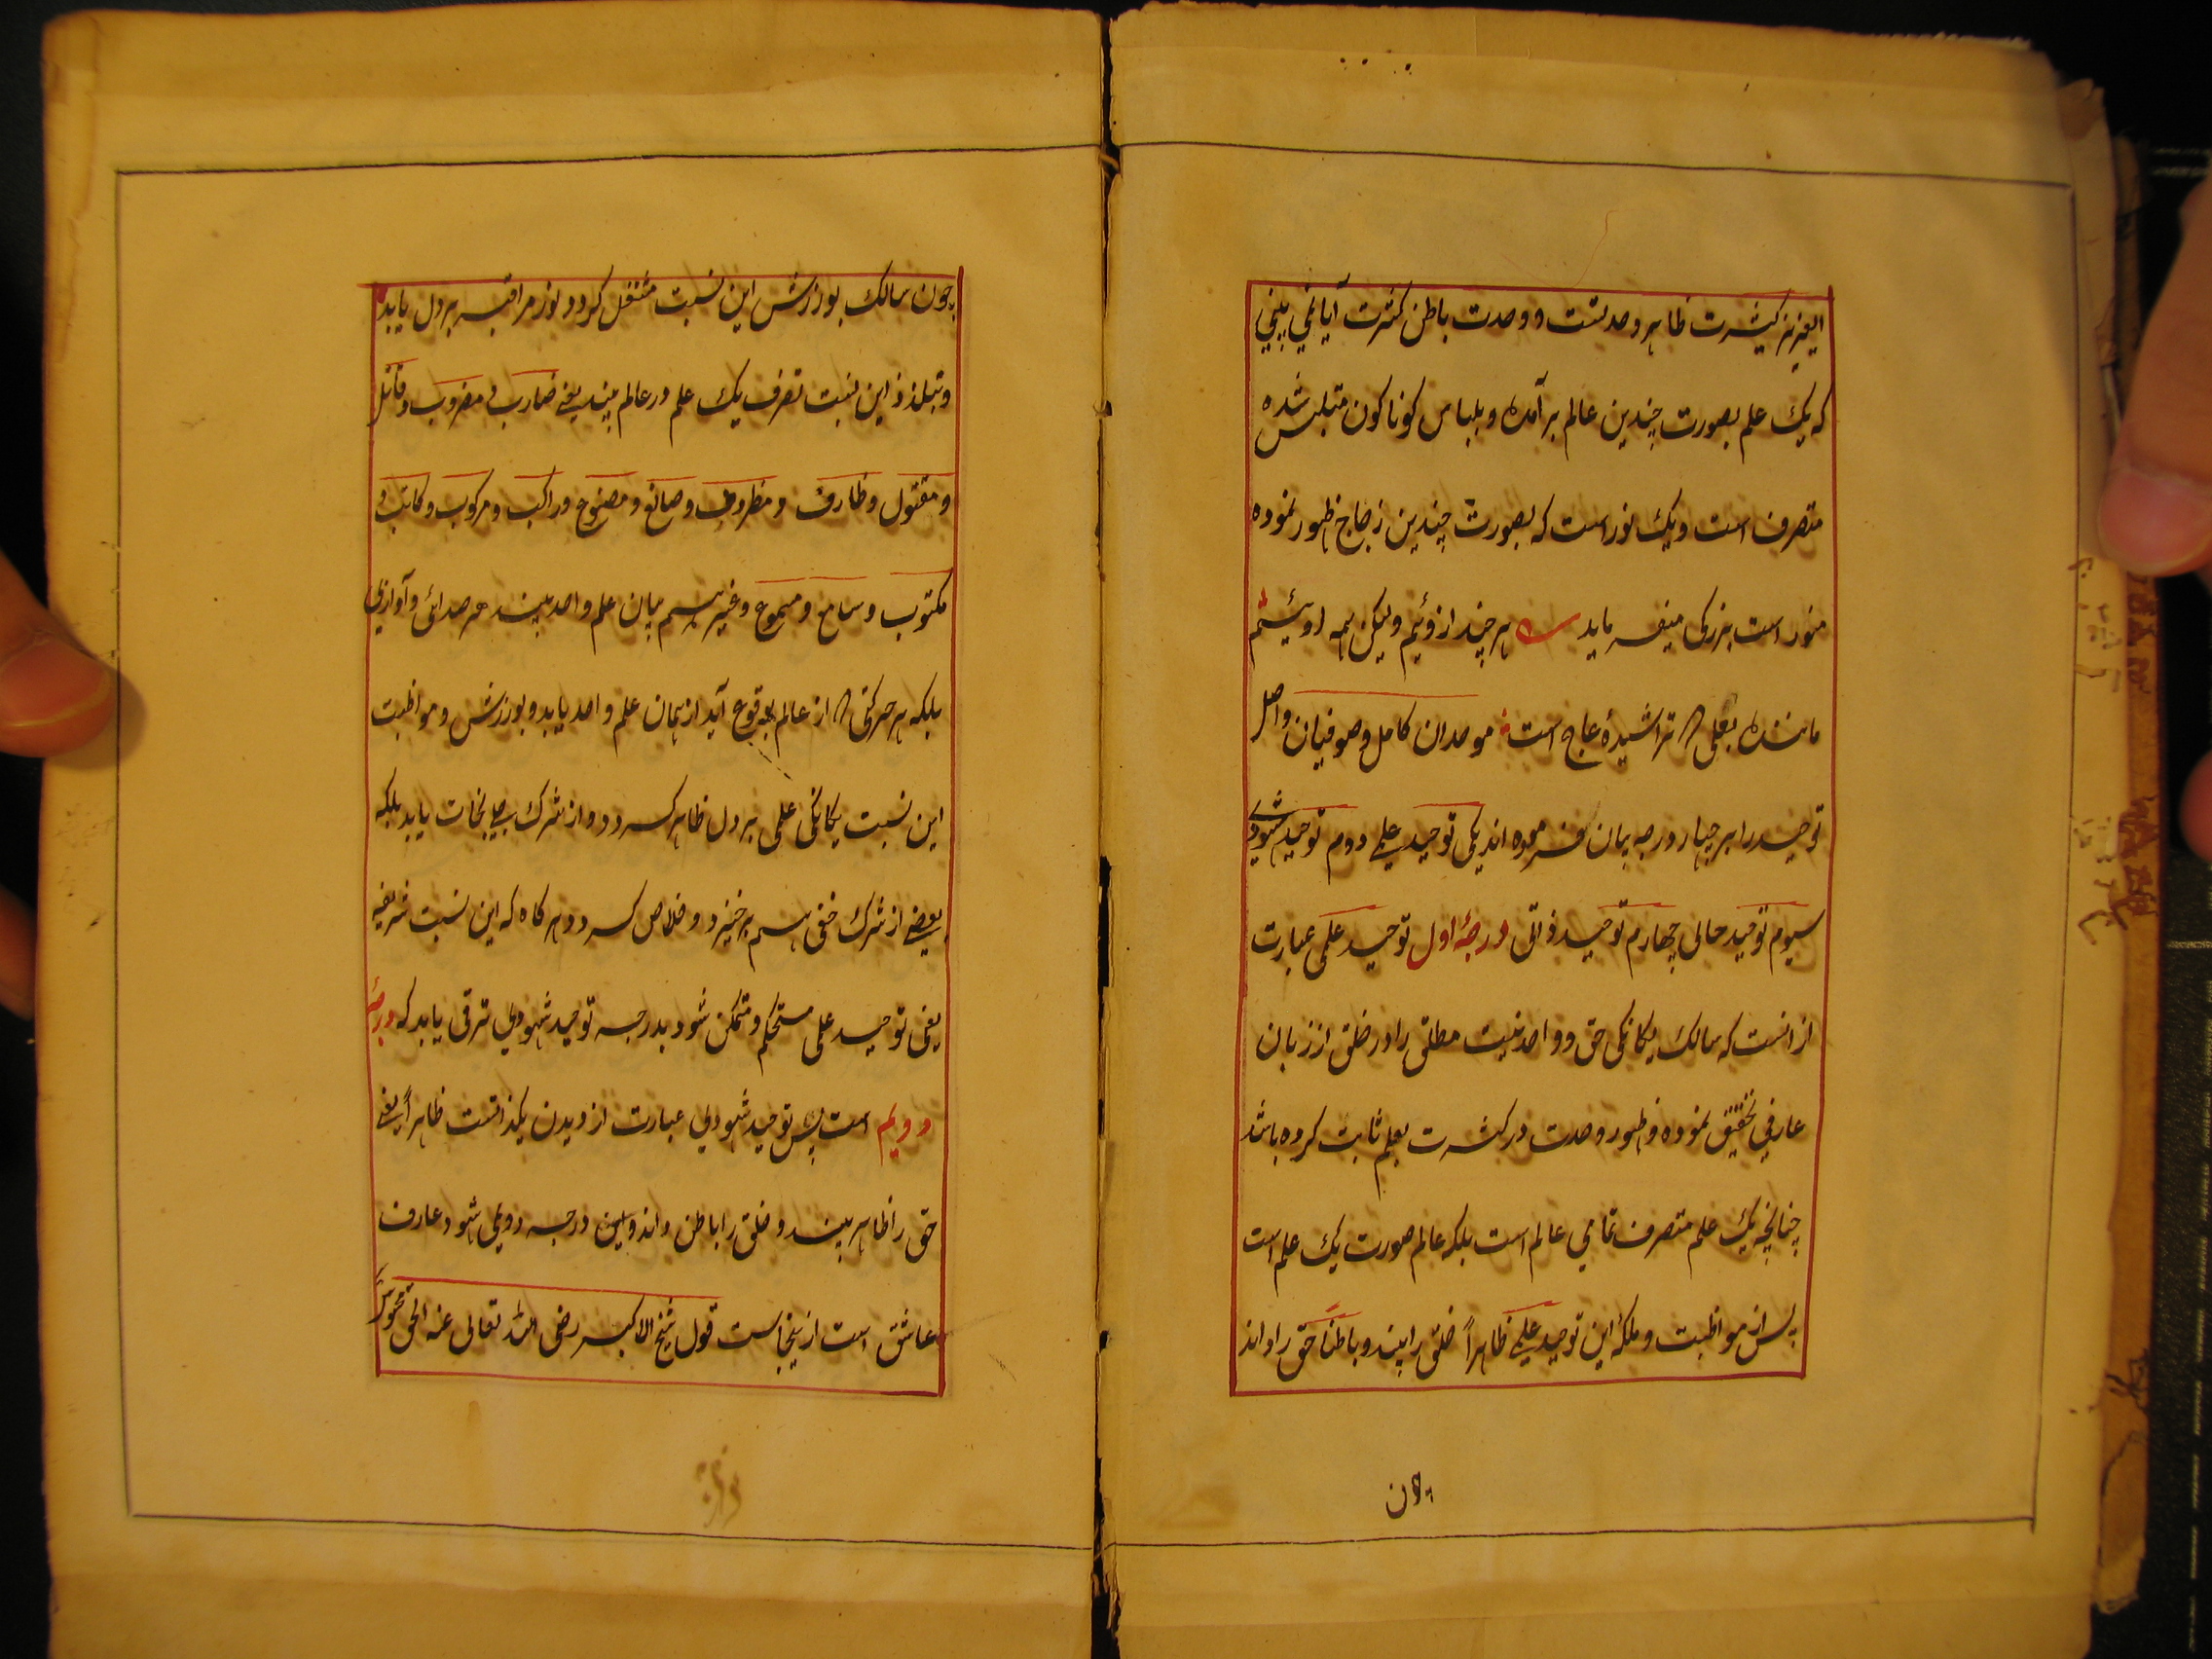 ایعزیز کثرت ظاهر وحدتست و وحدت باطن کثرت آیا نمی بینی
که یک علم بصورت چندین عالم برآمده و بلباس کوناکون متلبس شده
متصرف است و یک نور است که بصورت چندین زجاج ظهور نموده
منور است بزرکی میفرماید هر چند ازوئیم ولیکن همه اوئیم
ماننده بغلی که تراشیدهٔ عاج است موحدان کامل و صوفیان واصل
توحید را بر چهار درجه بیان فرموده اند یکی توحید علمی دوم توحید شهودی
سیوم توحید حالی چهارم توحید ذاتی درجهٔ اول توحید علمی عبارت
از انست که سالک یکانکی حق و واحدنیت مطلق را در خلق از زبان
عارفی تحقیق نموده و ظهور وحدت در کثرت بعلم ثابت کرده باشد
چنانچه یک علم متصرف تمامی عالم است بلکه عالم صورت یک علم است
پس از مواظبت و ملکهٔ این توحید علمی ظاهراً خلق را بیند و باطناً حق را داند
چون
چون سالک بورزش این نسبت مشتغل کردد نور مراقبه بر دل یابد
و بتلذذ این نسبت تصرف یک علم در عالم بیند یعنی ضارب و مضروب و قاتل
و مقتول و ظارف و مظروف و صانع و مصنوع و راکب و مرکوب و کاتب و
مکتوب و سامع و مسموع و غیرهم بیان علم واحد بیند هر صدائی و آوازی
بلکه هر حرکتی که از عالم بوقوع آید از همان علم واحد یابد و بورزش و مواظبت
این نسبت یکانکی علمی بر دل ظاهر کردد و از شرک جلی نجات یابد بلکه
بعضی از شرک خفی هم برخیزد و خلاص کردد هرکاه که این نسبت شریفه
یعنی توحید علمی مستحکم و متمکن شود بدرجه توحید شهودی ترقی یابد که درجهٔ
دویم است پس توحید شهودی عبارت از دیدن یکذاتست ظاهراً یعنی
حق را ظاهر بیند و خلق را باطن داند و این درجه دویمی شهود عارف
عاشق است ازینجاست قول شیخ الاکبر رضی الله تعالی عنه الحق محسوس